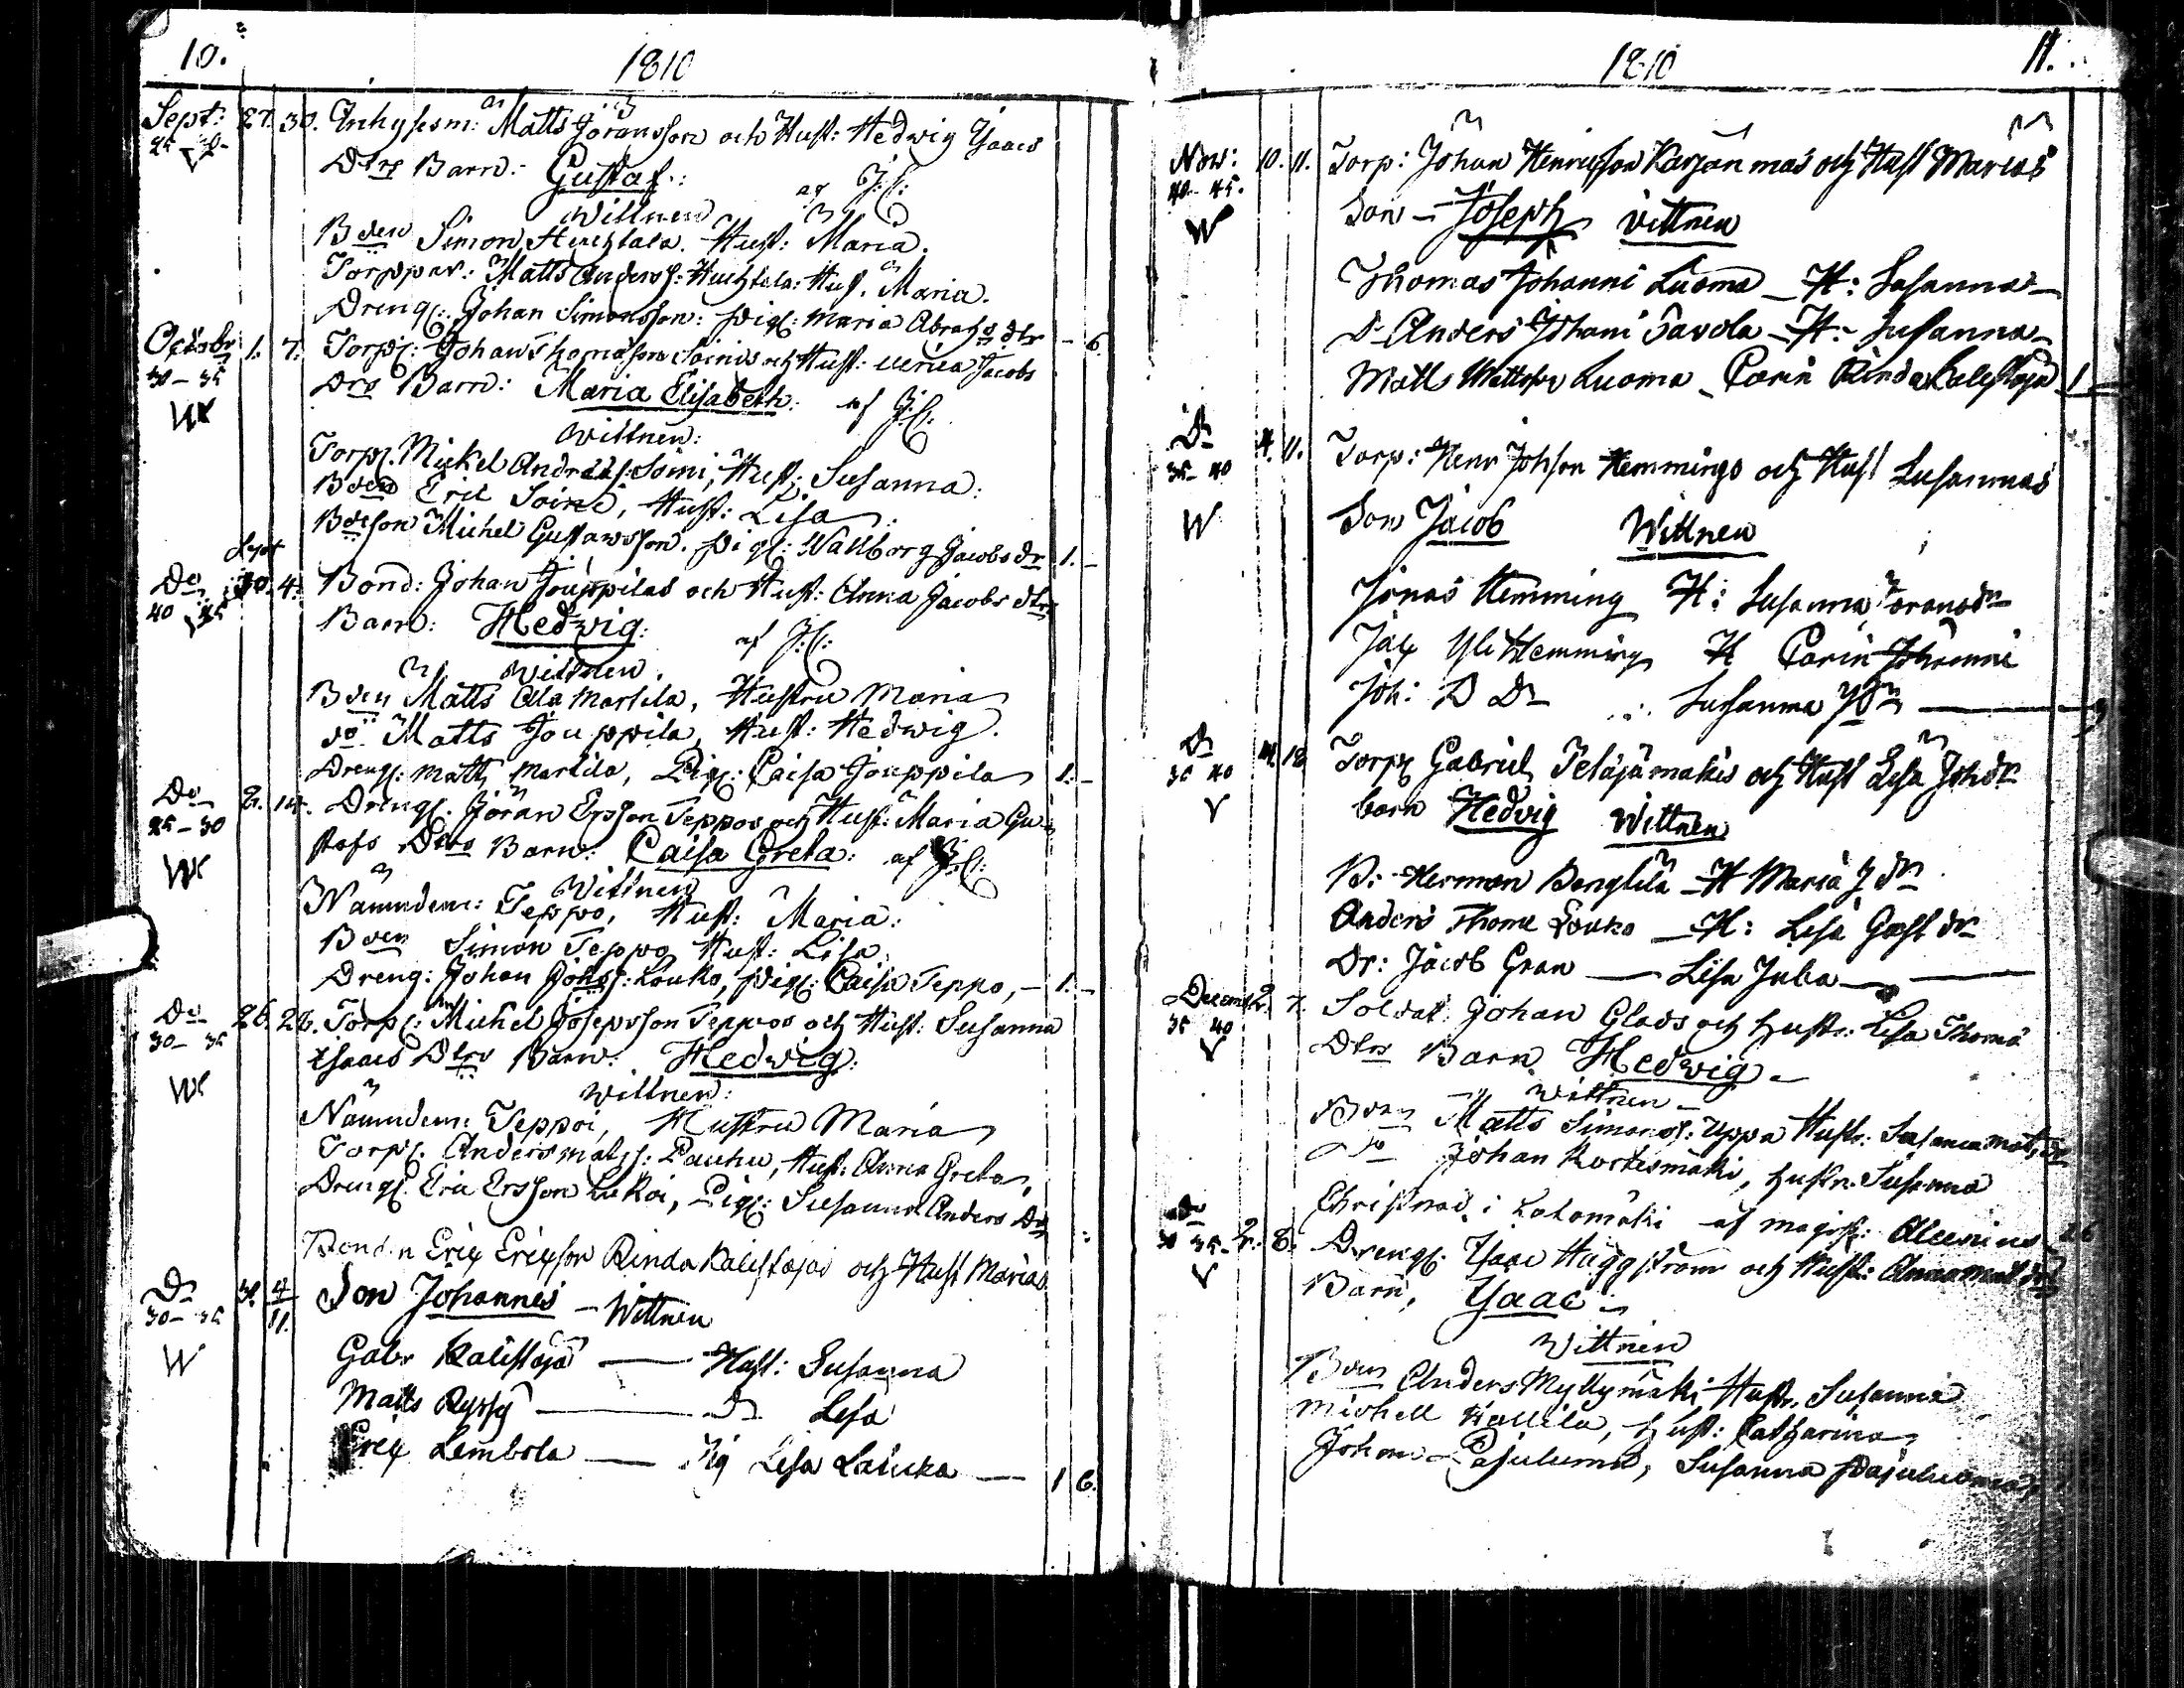 10. 1810
Sept: 27. 30. Inhysesm: Matts Göransson och Hust: Hedwig Isaacs
25 Dtrs Barn: Gustaf: af J:C:
Wittnen
Bden Simon Huchtala. Hust: Maria.
Torppar: Matts Anderss: Huchtala: Hust. Maria.
Drengs: Johan Simonsson: Pig: Maria Abrah dtr - 6
Octobr: 1. 7. Torp: Johan Thomasson Soinis och Hust: Ulrica Jacobs
30-35 Drs Barn: Maria Elisabeth: af J:C:
W Wittnen:
Torp: Mickel Andrèes: Soini, Hust: Susanna:
Bden Eric Soini, Hust: Lisa
Bdeson Michel Gustawsson. Pig: Wallborg Jacobs dr 1. -
Sept
Do 30. 4. Bond: Johan Jouppilas och Hust: Anna Jacobs dtrs
40 45 Barn: Hedwig: af J:C:
Wittnen.
Bden Matts Ala Martila, Hustru Maria
do Matts Jouppila, Hust: Hedwig.
Drengs: Matts Martila, Pig: Caisa Jouppila 1. -
Do 2. 14. Drengs: Göran Ersson Teppos och Hust: Maria Gu-
25-30 stafs Dtrs Barn: Caisa Greta: af J:C:
W Wittnen
Nämndem: Teppo, Hust: Maria:
Bden Simon Teppo Hust: Lisa
Dreng: Johan Johss: Louko, Pig: Caisa Teppo, - 1. -
Do 26. 28. Torp: Michel Josepsson Teppos och Hust: Susanna
30-35 Isaacs Dtrs Barn: Hedwig:
W Wittnen:
Nämndem: Teppoi, Hustru Maria
Torp: Anders Matss: Pauhu, Hust: Anna Greta,
Drengs: Eric Ersson Lukoi, Pig: Susanna Anders Dr
Bonden Eric Ericsson Rinda Kalistajas och Hust Marias
Do 31. 4/11. Son Johannes - Wittnen
30-35
W Gabr Kalistaja - Hust: Susanna
Matts Ryssy - Do Lisa
Eric Lembola - Pig Lisa Lauka - 1 6.
1810 11.
Nov: 10. 11. Torp: Johan Henricsson Karjanmas och Hust Marias
40-45. Son - Joseph Vittnen
W
Thomas Johanni Luoma - H: Susanna -
D Anders Johani Savola - H: Susanna -
Matts Mattsson Luoma - Carin Rinda Kalistaja 1 -
Do 4. 11. Torp: Henr Johsson Hemmings och Hust Susannas
35-40 Son Jacob Wittnen
W
Jonas Hemming H: Susanna Göransdr
Jac Yli Hemming H Carin Johanni
Joh: D Do Susanna
Do 11. 18 Torp Gabriel Jeläjämäkis och Hust Lisa Johdr
35 40 barn Hedvig Wittnen
V
B: Herman Bengtila - H Maria J dr
Anders Thome Louko - H: Lisa Gust dr
Dr: Jacob Gran - Lisa Juba -
Decembr 2. 7. Soldat: Johan Glads och Hustr: Lisa Thoms
35 40 Dtrs Barn Hedwig -
V Wittnen -
Bden Matts Simonss: Uppa Hustr: Susanna Mats dr
Do Johan Kortesmäki, Hustr: Susanna
Christnad i Latomäki af magist: Alcenius 26
Do 2. 8. Drengs: Isaac Häggström och Hust: Anna Mats dr
30 35 Barn, Isaac -
V Wittnen
Bden Anders Myllymäki Hustr. Susanna
Michell Kallila, Hust: Catharina
Johan Pajuluoma, Susanna Pajuluoma,